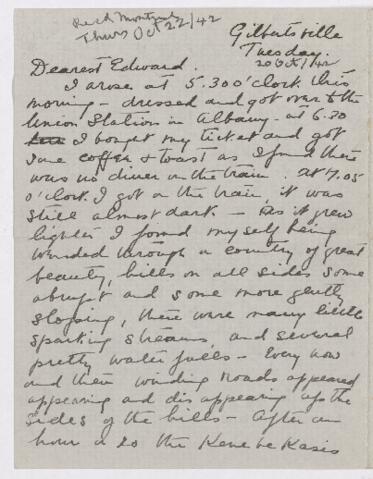 Recd Montreal
Thurs Oct 22/42
Gilbertsville
Tuesday.
20 Oct/42
Dearest Edward.
I arose at 5.30 o'clock this
morning - dressed and got over to the
Union Station in Albany - at 6.30
I bought my ticket and got
some coffee & toast as I found there
was no diner on the train. at 7.05
o'clock I got on the train, it was
still almost dark - as it grew
lighter I found myself being
winded through a country of great
beauty, hills on all sides some
abrupt and some more gently
sloping, there were many little
sparkling streams, and several
pretty water falls - Every now
and then winding roads appeared
appearing and disappearing up the
sides of the hills - After an
hour or so the Kennebekasis